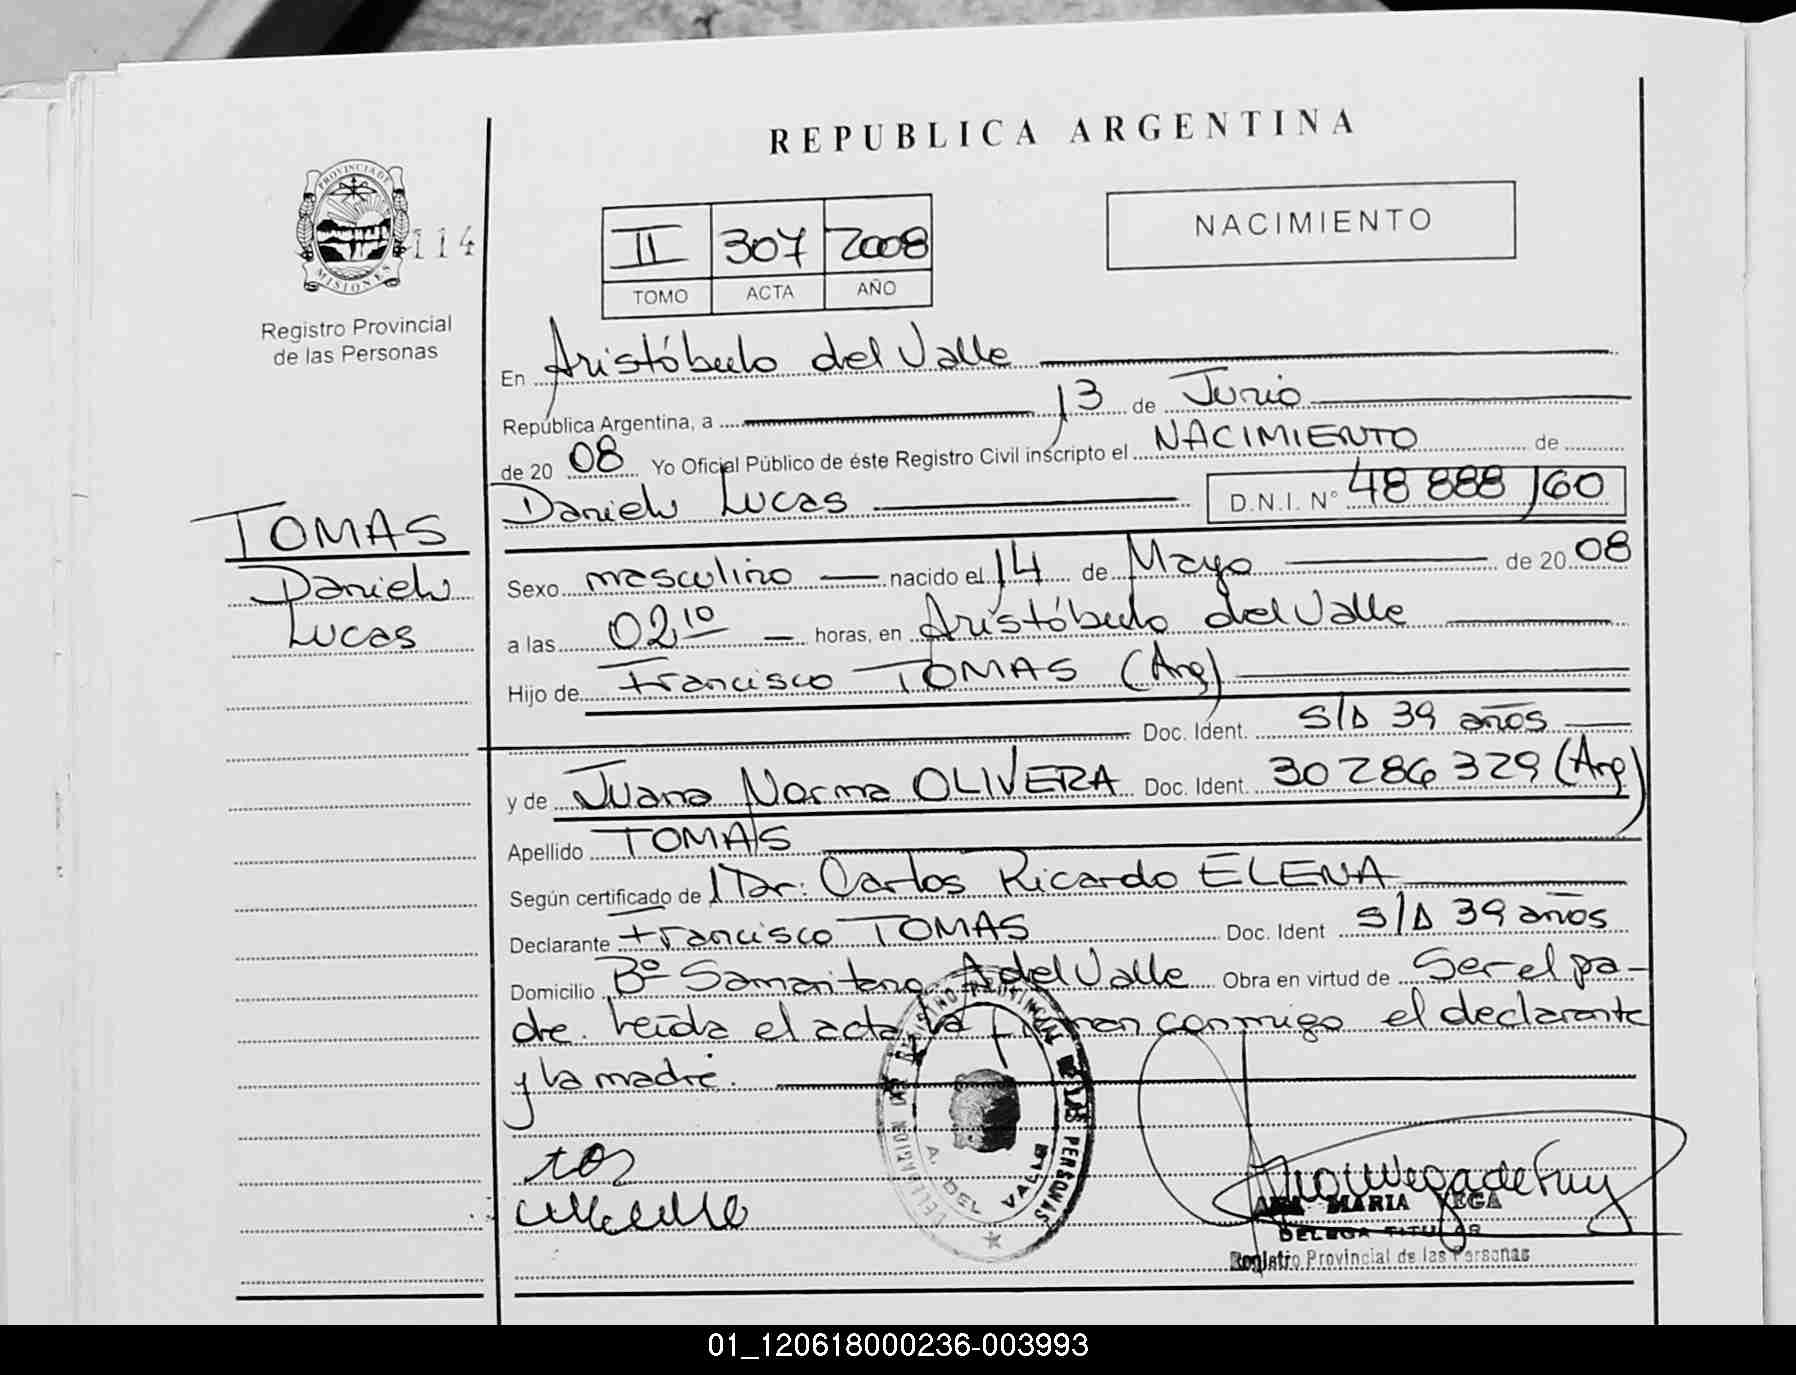 REPUBLICA ARGENTINA
PROVINCIA DE MISIONES
114
Registro Provincial
de las Personas
II 307 2008
TOMO ACTA AÑO
NACIMIENTO
En Aristóbulo del Valle
República Argentina, a 13 de Junio
de 20 08 Yo Oficial Público de éste Registro Civil inscripto el NACIMIENTO de
Daniel Lucas D.N.I. N° 48 888 160
TOMAS
Daniel
Lucas
Sexo masculino nacido el 14 de Mayo de 20 08
a las 02 10 horas, en Aristóbulo del Valle
Hijo de Francisco TOMAS (Arg)
Doc. Ident. S/D 39 años
y de Juana Norma OLIVERA Doc. Ident. 30 286 329 (Arg)
Apellido TOMAS
Según certificado de Dr: Carlos Ricardo ELENA
Declarante Francisco TOMAS Doc. Ident S/D 39 años
Domicilio Bº Samaritano A del Valle Obra en virtud de Ser el pa-
dre. Leída el acta la firman conmigo el declarante
y la madre.
DELEGACION DEL REGISTRO PROVINCIAL DE LAS PERSONAS
A. DEL VALLE
ANA MARIA VEGA
DELEGA TITULAR
Registro Provincial de las Personas
01_120618000236-003993